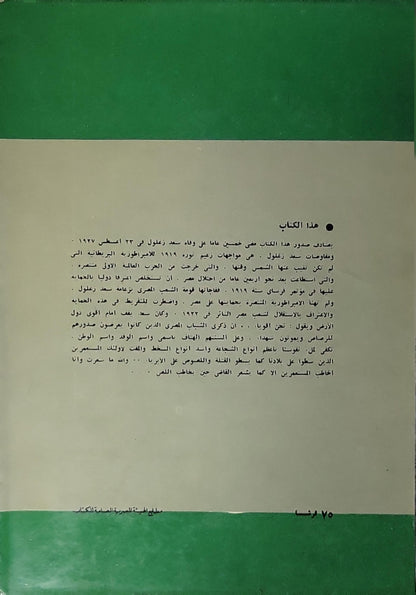 ● هذا الكتاب
يصادف صدور هذا الكتاب مضى خمسين عاما على وفاة سعد زغلول فى ٢٣ اغسطس ١٩٢٧ .
ومفاوضات سعد زغلول . هى مواجهات زعيم ثورة ١٩١٩ للامبراطورية البريطانية التى
لم تكن تغيب عنها الشمس وقتها . والتى خرجت من الحرب العالمية الاولى منتصرة .
والتى استطاعت بعد نحو اربعين عاما من احتلال مصر . ان تستخلص اعترافا دوليا بالحماية
عليها فى مؤتمر فرساى سنة ١٩١٩ . ففاجأتها ثورة الشعب المصرى بزعامة سعد زغلول .
ولم تهنا الامبراطورية المنتصرة بحمايتها على مصر . واضطرت للتفريط فى هذه الحماية
والاعتراف بالاستقلال لشعب مصر الثائر فى ١٩٢٢ . وكان سعد يقف امام اقوى دول
الأرض ويقول : نحن اقوياء .. ان ذكرى الشباب المصرى الذين كانوا يعرضون صدورهم
للرصاص ويموتون شهداء . وعلى السنتهم الهتاف باسمى واسم الوفد واسم الوطن .
تكفى لملء نفوسنا بأعظم انواع الشجاعة واشد انواع السخط والمقت لاولئك المستعمرين
الذين سطوا على بلادنا كما يسطو القتلة واللصوص على الابرياء .. والله ما شعرت وأنا
أخاطب المستعمرين الا كما يشعر القاضى حين يخاطب اللص . . .
٧٥ قرشا
مطابع الهيئة المصرية العامة للكتاب